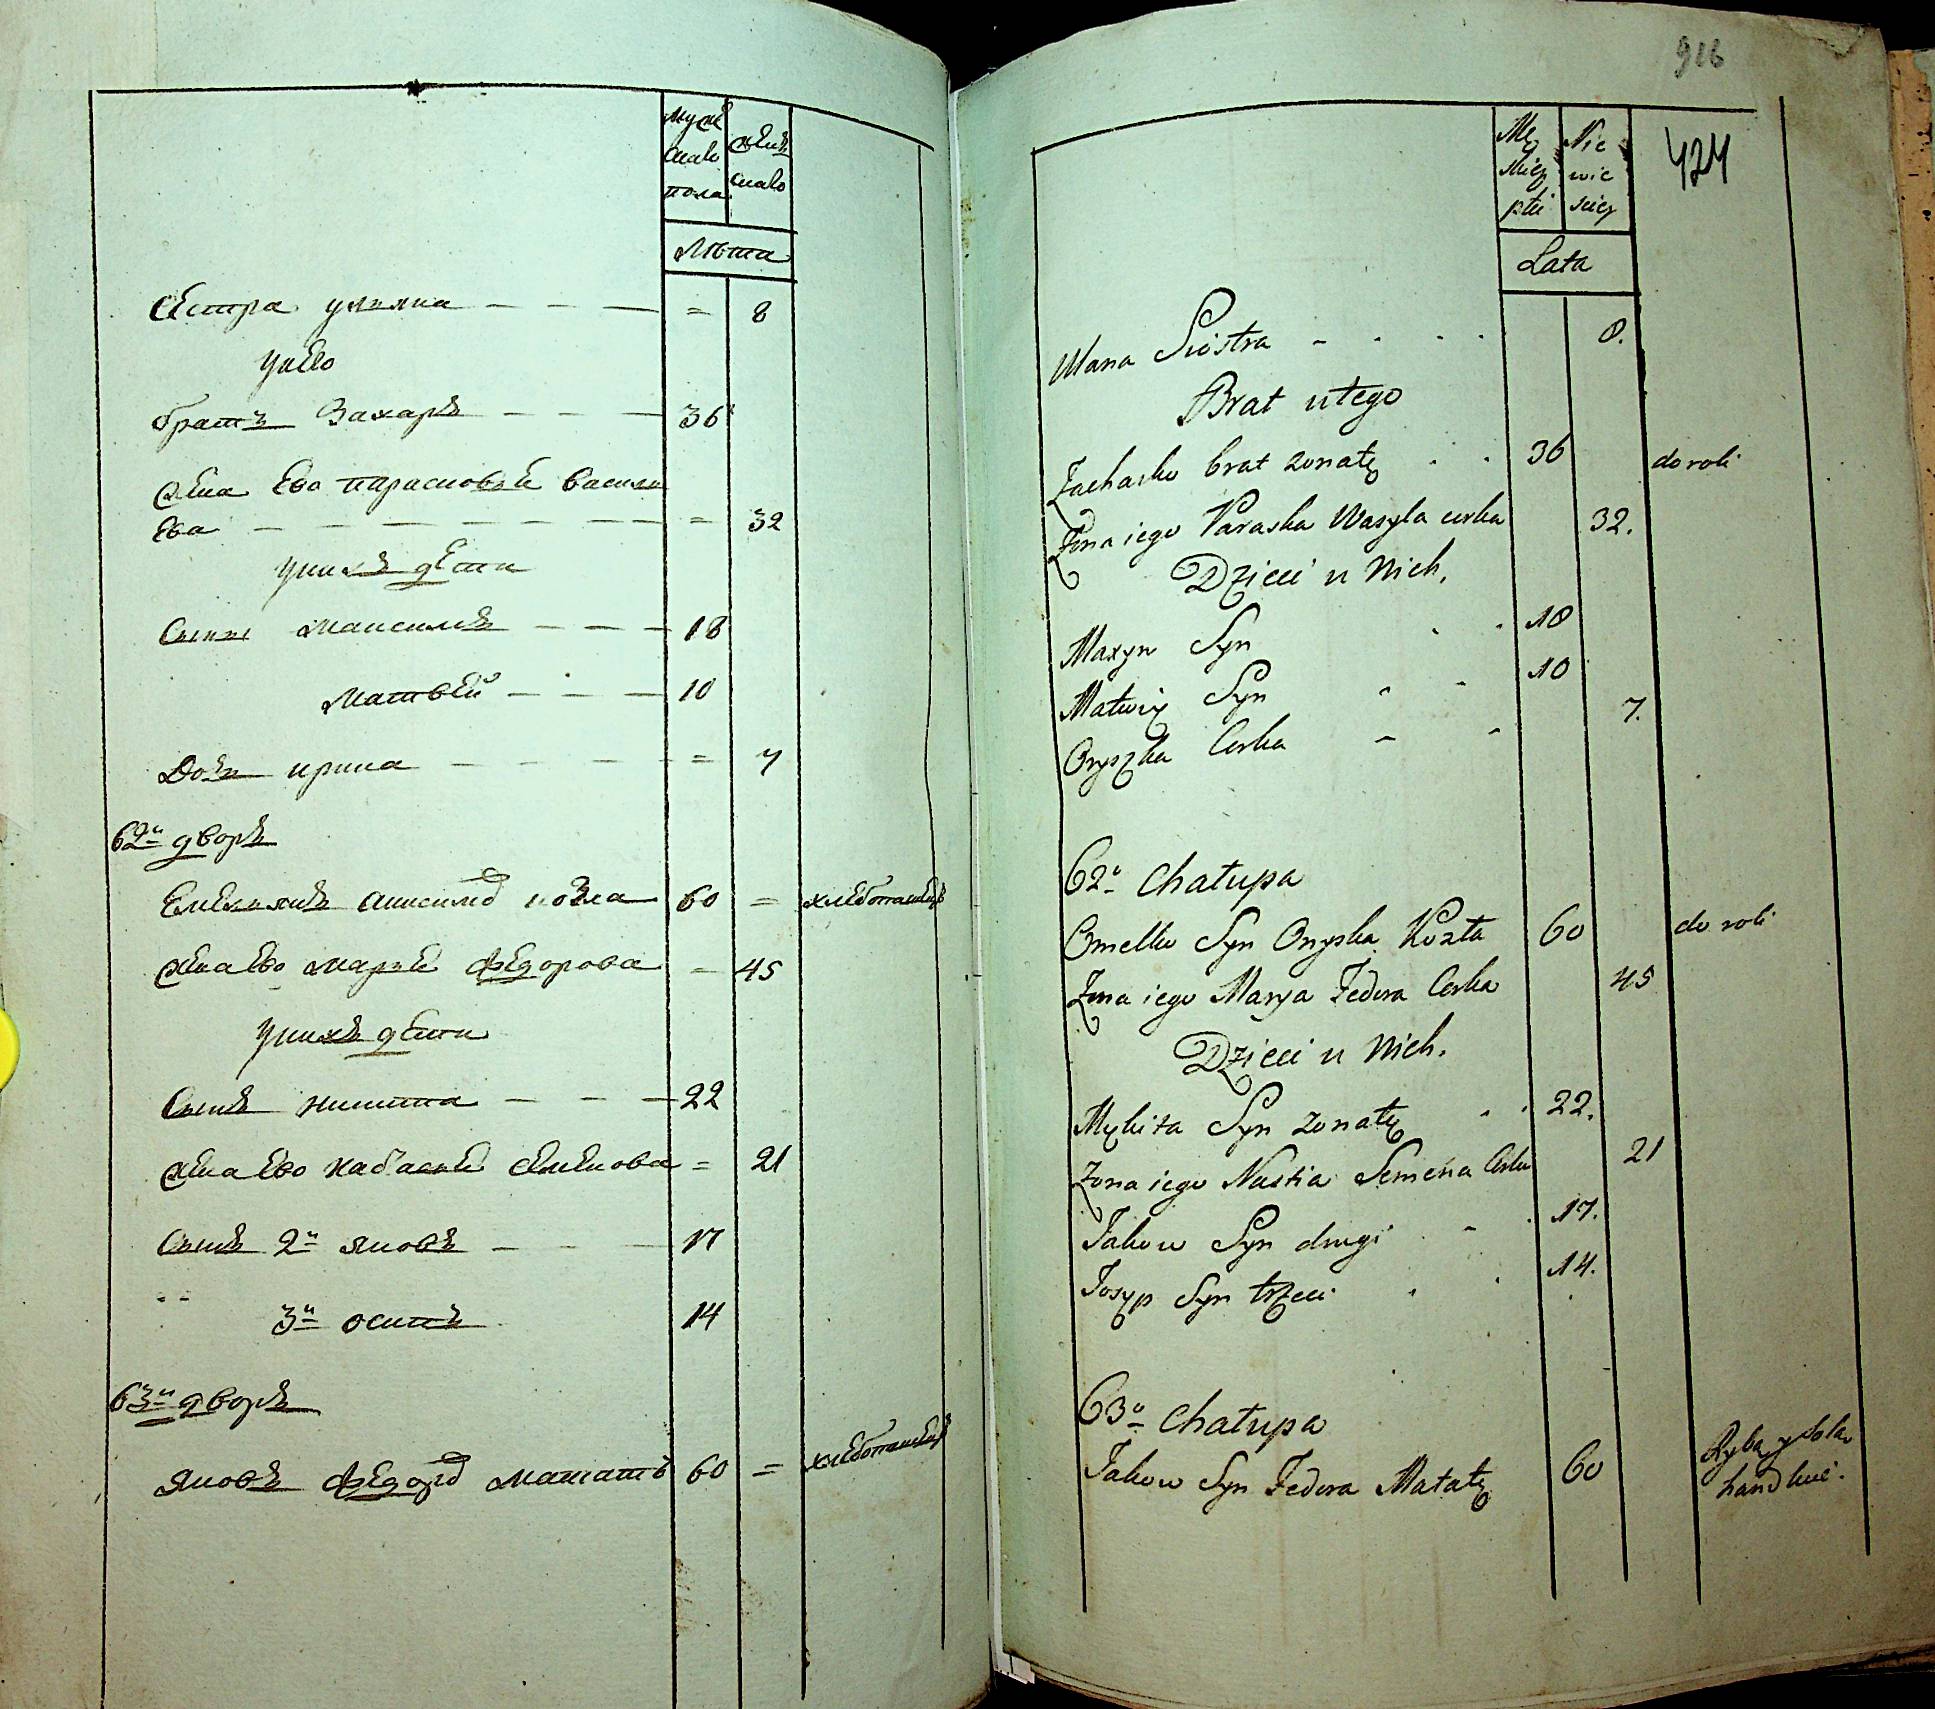 Муже
скаго
пола
женс
скаго
Лѣта
Сестра уляна — — — = 8
унего
братъ Захаръ — — — 36
жена Его парасковья Васили
Ева — — — — — — = 32
унихъ дети
Сыны Максимъ — — — 18
матвей — — — 10
Дочь ирина — — — — = 7
62й дворъ
Емельянъ Анисимов козла 60 = хлебопашецъ
жена Его марья федорова = 45
унихъ дети
Сынъ никита — — — 22
жена Его настасья семенова = 21
Сынъ 2й яковъ — — — 17
3й осипъ 14
63й дворъ
яковъ федоров мататъ 60 = хлебопашецъ
916
424
Mę
skiey
płci
Nie
wie
sciey
Lata
Ulana Siostra - . . . 8.
Brat utego
Zacharko brat zonaty . . 36 do roli
Zona iego Paraska Wasyla curka 32.
Dzieci u Nich.
Maxym Syn . . 18
Matwiy Syn - - 10
Oryszka Curka - - 7.
62a Chałupa
Omelko Syn Onyska Kozła 60 do roli
Zona iego Marya Fedora Curka 45
Dzieci u Nich.
Mykita Syn zonaty . . 22.
Zona iego Nastia Semena Curka 21
Jakow Syn drugi - . 17.
Josyp Syn trzeci . . 14.
63a Chałupa
Jakow Syn Fedora Mataty 60 Rybą y Solą
handluie.